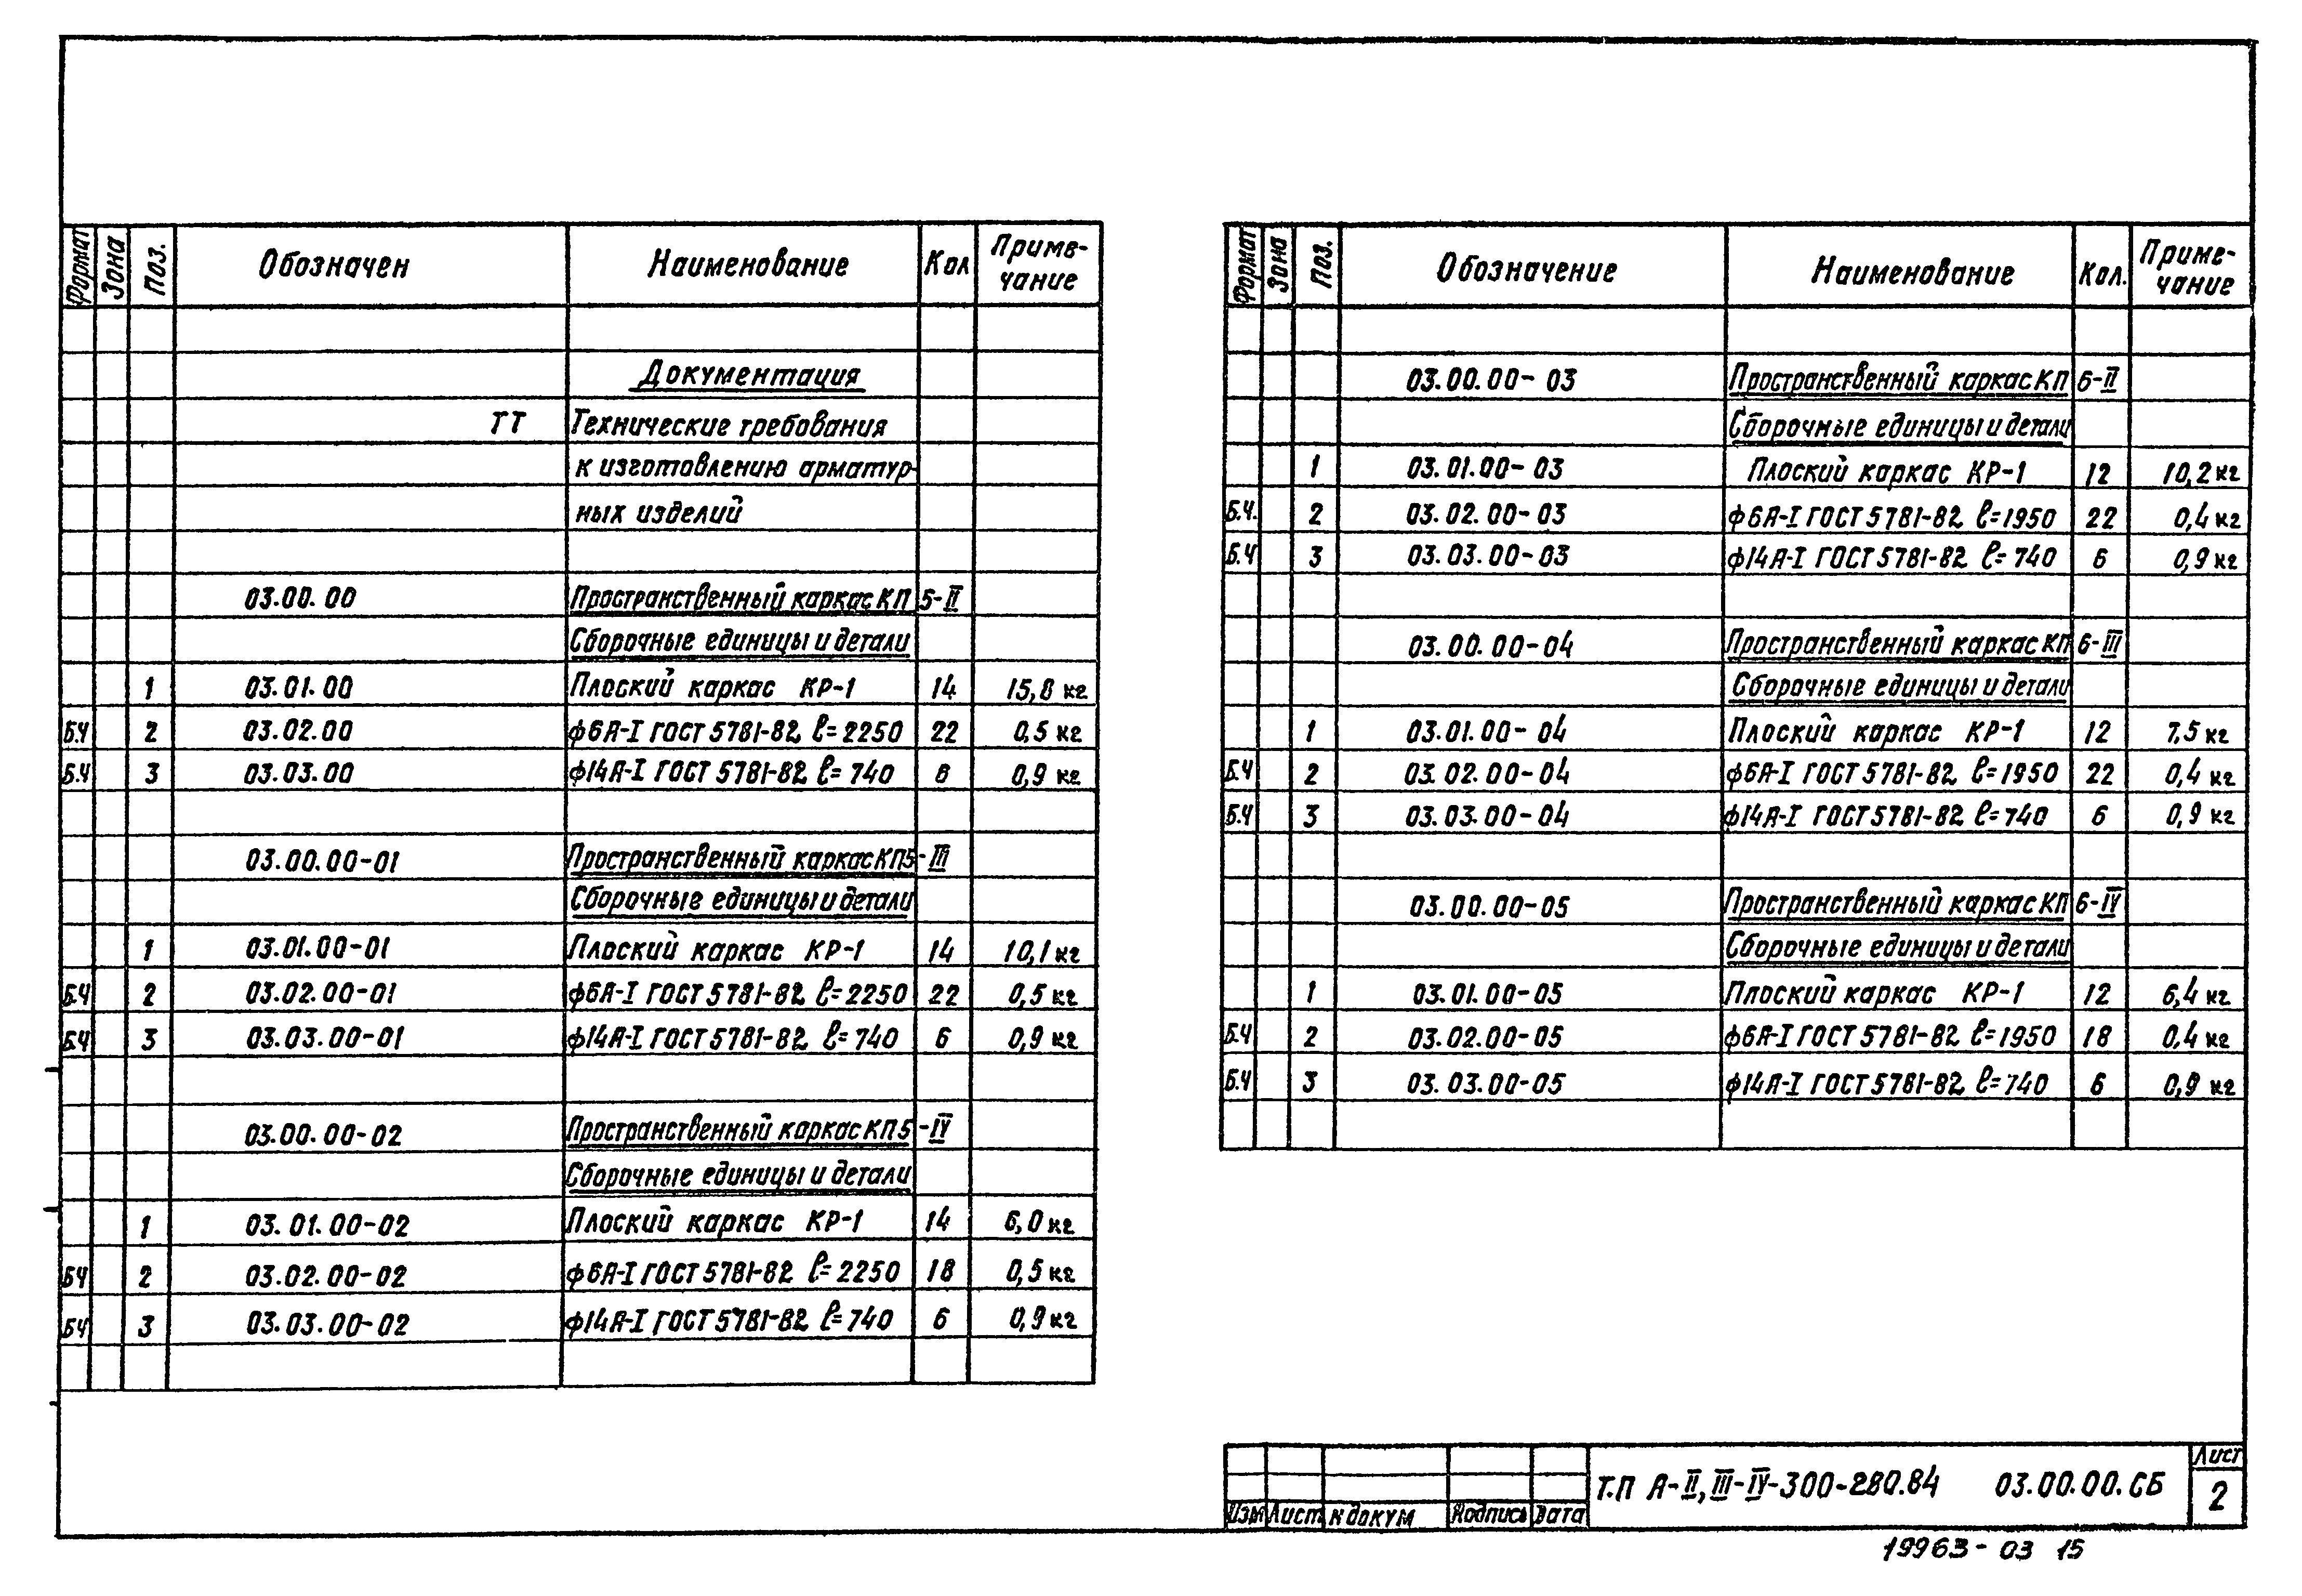 Формат Зона Поз. Обозначен Наименование Кол Приме-
чание
Документация
ТТ Технические требования
к изготовлению арматур-
ных изделий
03.00.00 Пространственный каркас КП 5-II
Сборочные единицы и детали
1 03.01.00 Плоский каркас КР-1 14 15,8 кг
Б.Ч 2 03.02.00 ф6А-I ГОСТ 5781-82 ℓ=2250 22 0,5 кг
Б.Ч 3 03.03.00 ф14А-I ГОСТ 5781-82 ℓ=740 6 0,9 кг
03.00.00-01 Пространственный каркас КП5-III
Сборочные единицы и детали
1 03.01.00-01 Плоский каркас КР-1 14 10,1 кг
Б.Ч 2 03.02.00-01 ф6А-I ГОСТ 5781-82 ℓ=2250 22 0,5 кг
Б.Ч 3 03.03.00-01 ф14А-I ГОСТ 5781-82 ℓ=740 6 0,9 кг
03.00.00-02 Пространственный каркас КП5-IV
Сборочные единицы и детали
1 03.01.00-02 Плоский каркас КР-1 14 6,0 кг
БЧ 2 03.02.00-02 ф6А-I ГОСТ 5781-82 ℓ=2250 18 0,5 кг
БЧ 3 03.03.00-02 ф14А-I ГОСТ 5781-82 ℓ=740 6 0,9 кг
Формат Зона Поз. Обозначение Наименование Кол. Приме-
чание
03.00.00-03 Пространственный каркас КП 6-II
Сборочные единицы и детали
1 03.01.00-03 Плоский каркас КР-1 12 10,2 кг
Б.Ч. 2 03.02.00-03 ф6А-I ГОСТ 5781-82 ℓ=1950 22 0,4 кг
Б.Ч 3 03.03.00-03 ф14А-I ГОСТ 5781-82 ℓ=740 6 0,9 кг
03.00.00-04 Пространственный каркас КП 6-III
Сборочные единицы и детали
1 03.01.00-04 Плоский каркас КР-1 12 7,5 кг
Б.Ч 2 03.02.00-04 ф6А-I ГОСТ 5781-82 ℓ=1950 22 0,4 кг
Б.Ч 3 03.03.00-04 ф14А-I ГОСТ 5781-82 ℓ=740 6 0,9 кг
03.00.00-05 Пространственный каркас КП 6-IV
Сборочные единицы и детали
1 03.01.00-05 Плоский каркас КР-1 12 6,4 кг
Б.Ч 2 03.02.00-05 ф6А-I ГОСТ 5781-82 ℓ=1950 18 0,4 кг
Б.Ч 3 03.03.00-05 ф14А-I ГОСТ 5781-82 ℓ=740 6 0,9 кг
Изм Лист N докум Подпись Дата
Т.П А-II, III-IV-300-280.84 03.00.00.СБ
Лист
2
19963-03 15